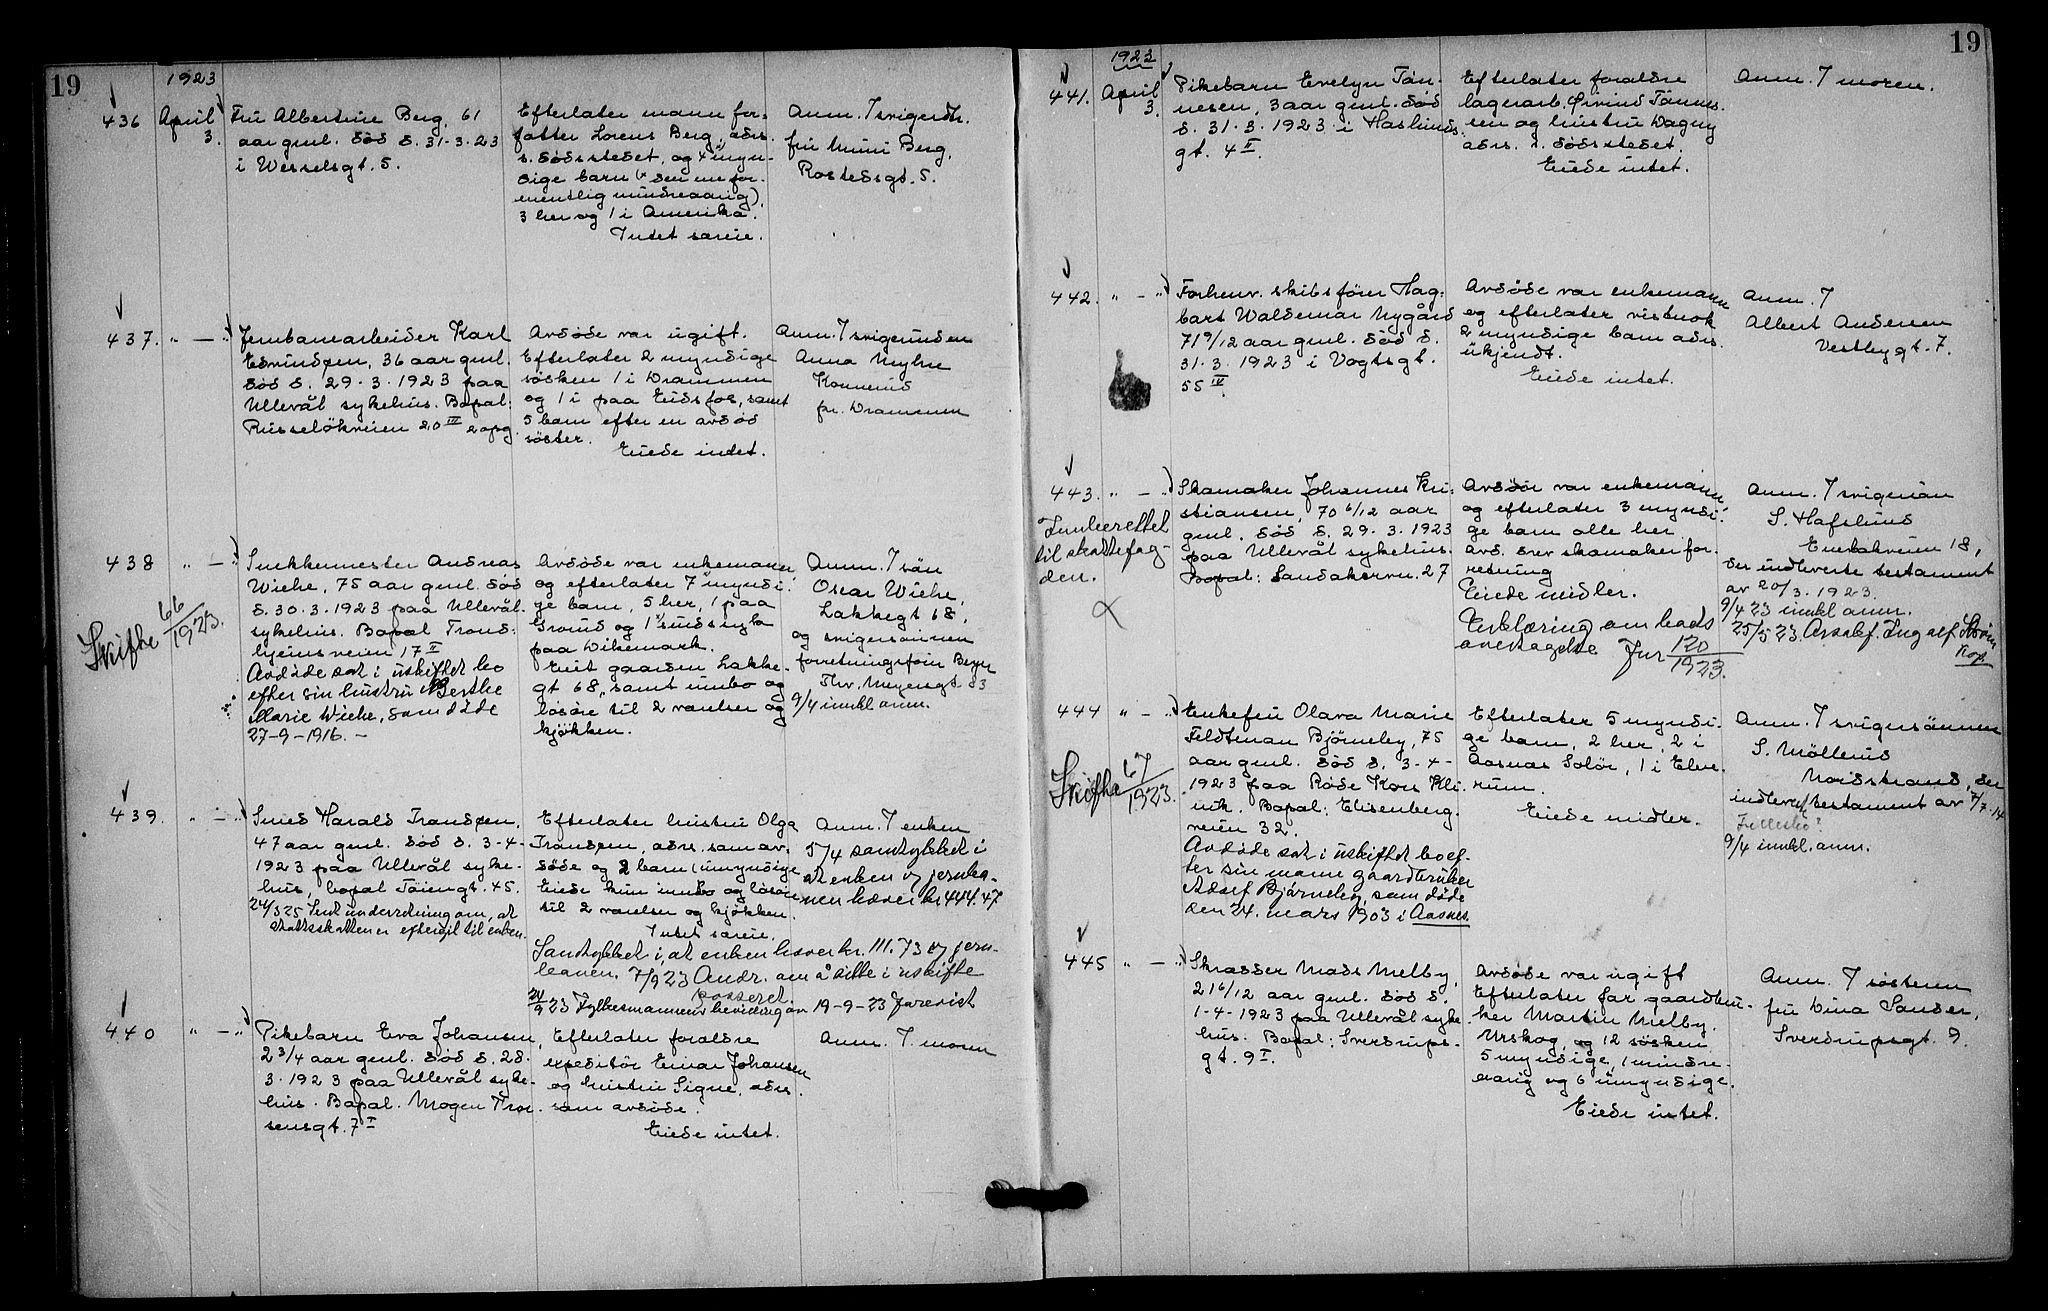 19
1923
436
April
3.
Fru Albertine Berg, 61
aar gml. død d. 31-3-23
i Wesselsgt. 5.
Efterlater mann for-
fatter Lorens Berg, adrs.
s. dødsstedet, og 4 myn-
dige barn (x den ene for-
mentlig mindreaarig),
3 her og 1 i Amerika.
Intet særeie.
Anm. I svigerdtr.
fru Muni Berg,
Rostedsgt. 5.
437. " — "
Jernbanearbeider Karl
Edvindsen, 36 aar gml.
død d. 29-3-1923 paa
Ullevål sykehus. Bopal:
Ruseløkveien 20 III 2 opg.
Avdøde var ugift.
Efterlater 2 myndige
søsken 1 i Drammen
og 1 i paa Eidsfos, samt
5 barn efter en avdød
søster.
Eiede indet.
Anm. I svigerinden
Anna Myhre
Konnerud
pr. Drammen
438 " — "
Skifte 66/1923.
Snekkermester Andreas
Wiche, 75 aar gml. død
d. 30.3.1923 paa Ullevål
sykehus. Bopæl Trond-
hjemsveien 17 II
Avdøde sat i uskiftet bo
efter sin hustru Berthe
Marie Wiche, som døde
27-9-1916. —
Avdøde var enkemann
og efterlater 7 myndi-
ge barn, 5 her, 1 paa
Grorud og 1 sindssyk
paa Dikemark.
Eiet gaarden Lakke-
gt 68, samt innbo og
løsøre til 2 værelser og
kjøkken.
Anm. I søn
Oscar Wiche,
Lakkegt 68,
og svigersønnen
forretningsfører Beyer
Thv. Meyersgt 83
9/4 innkl. anm.
439. " — "
Smed Harald Transpen,
47 aar gml. død d. 3-4-
1923 paa Ullevål syke-
hus, bopal Tøiengt. 45.
24/3 25 Sendt underretning om, at
statsskatten er eftergit til enken.
Efterlater hustru Olga
Transpen, adrs. som av-
døde og 2 barn (umyndige
Eiede kun innbo og løsøre
til 2 værelser og kjøkken.
Intet særeie.
Samtykket i, at enken hæver kr. 111.73 og jern-
banen. 7/9 23 Andr. om å sitte i uskifte
passeret.
24/9 23 Fylkesmannens bevilling av 19-9-23 forevist
Anm. I enken
5/4 samtykket i
at enken og jernba-
nen hæver kr 444.47
440 " — "
Pikebarn Eva Johansen,
2 3/4 aar gml. død d. 28-
3-1923 paa Ullevål syke-
hus. Bopal. Mogen Thor-
sensgt. 7 I
Efterlater foraldre
expeditør Einar Johansen
og hustru Signe, adrs.
som avdøde.
Eiede intet.
Anm. I. moren
19
1923
441.
April
3.
Pikebarn Evelyn Tøn-
nesen, 3 aar gml. død
d. 31-3-1923 i Haslunds
gt. 4 II.
Efterlater foraldre
lagerarb. Øivind Tønnes-
sen og hustru Dagny
adrs. s. dødsstedet.
Eiede intet.
Anm. I moren.
442. " — "
Forhenv. skibsfører Hag-
bart Waldemar Nygård
71 9/12 aar gml. død d.
31.3.1923 i Vogtsgt.
55 IV.
Avdøde var enkemann
og efterlater vistnok
2 myndige barn adrs.
ukjendt.
Eiede intet.
Anm. I
Albert Andersen
Vestbygt. 7.
443. " — "
Innberettet
til skattefog-
den.
Skomaker Johannes Kri-
stiansen, 70 6/12 aar
gml. død d. 29-3.1923
paa Ullevål sykehus.
Bopal: Sandakervn. 27
Avdøde var enkemann,
og efterlater 3 myndi-
ge barn alle her
avd. drev skomaker for-
retning
Eiede midler.
Erklæring om bods
overtagelse Jnr 120/1923.
Anm. I svigersøn
S. Hafslund
Enebakveien 18,
der indleverte testament
av 20/3.1923.
9/4 23 innkl anm.
25/5 23. Avskf. Ing elf. Strøm
444 " — "
Skifte 67/1923.
Enkefru Olava Marie
Feldtman Bjørneby, 75
aar gml. død d. 3-4-
1923 paa Røde Kors Kli-
nik. Bopal: Elisenberg-
veien 32.
Avdøde sat i uskiftet bo ef-
ter sin mann gaardbruker
Adolf Bjørneby, som døde
den 24. mars 1903 i Aasnes.
Efterlater 5 myndi-
ge barn, 2 her, 2 i
Aasnes Solør, 1 i Elve-
rum.
Eiede midler.
Anm. I svigersønnen
S. Møllerud
Nordstrand, der
indleverte testament av 7/7-14
Fellesbo?
9/4 innkl. anm.
445 " — "
Skrædder Mads Melby,
21 6/12 aar gml. død d.
1-4-1923 paa Ullevål syke-
hus. Bopal: Sverdrups-
gt. 9 I.
Avdøde var ugift
Efterlater far gaardbru-
ker Martin Melby.
Urskog, og 12 søsken
5 myndige, 1 mindre-
aarig og 6 umyndige.
Eiede intet.
Anm. I søsteren
fru Dina Sander,
Sverdrupsgt. 9.